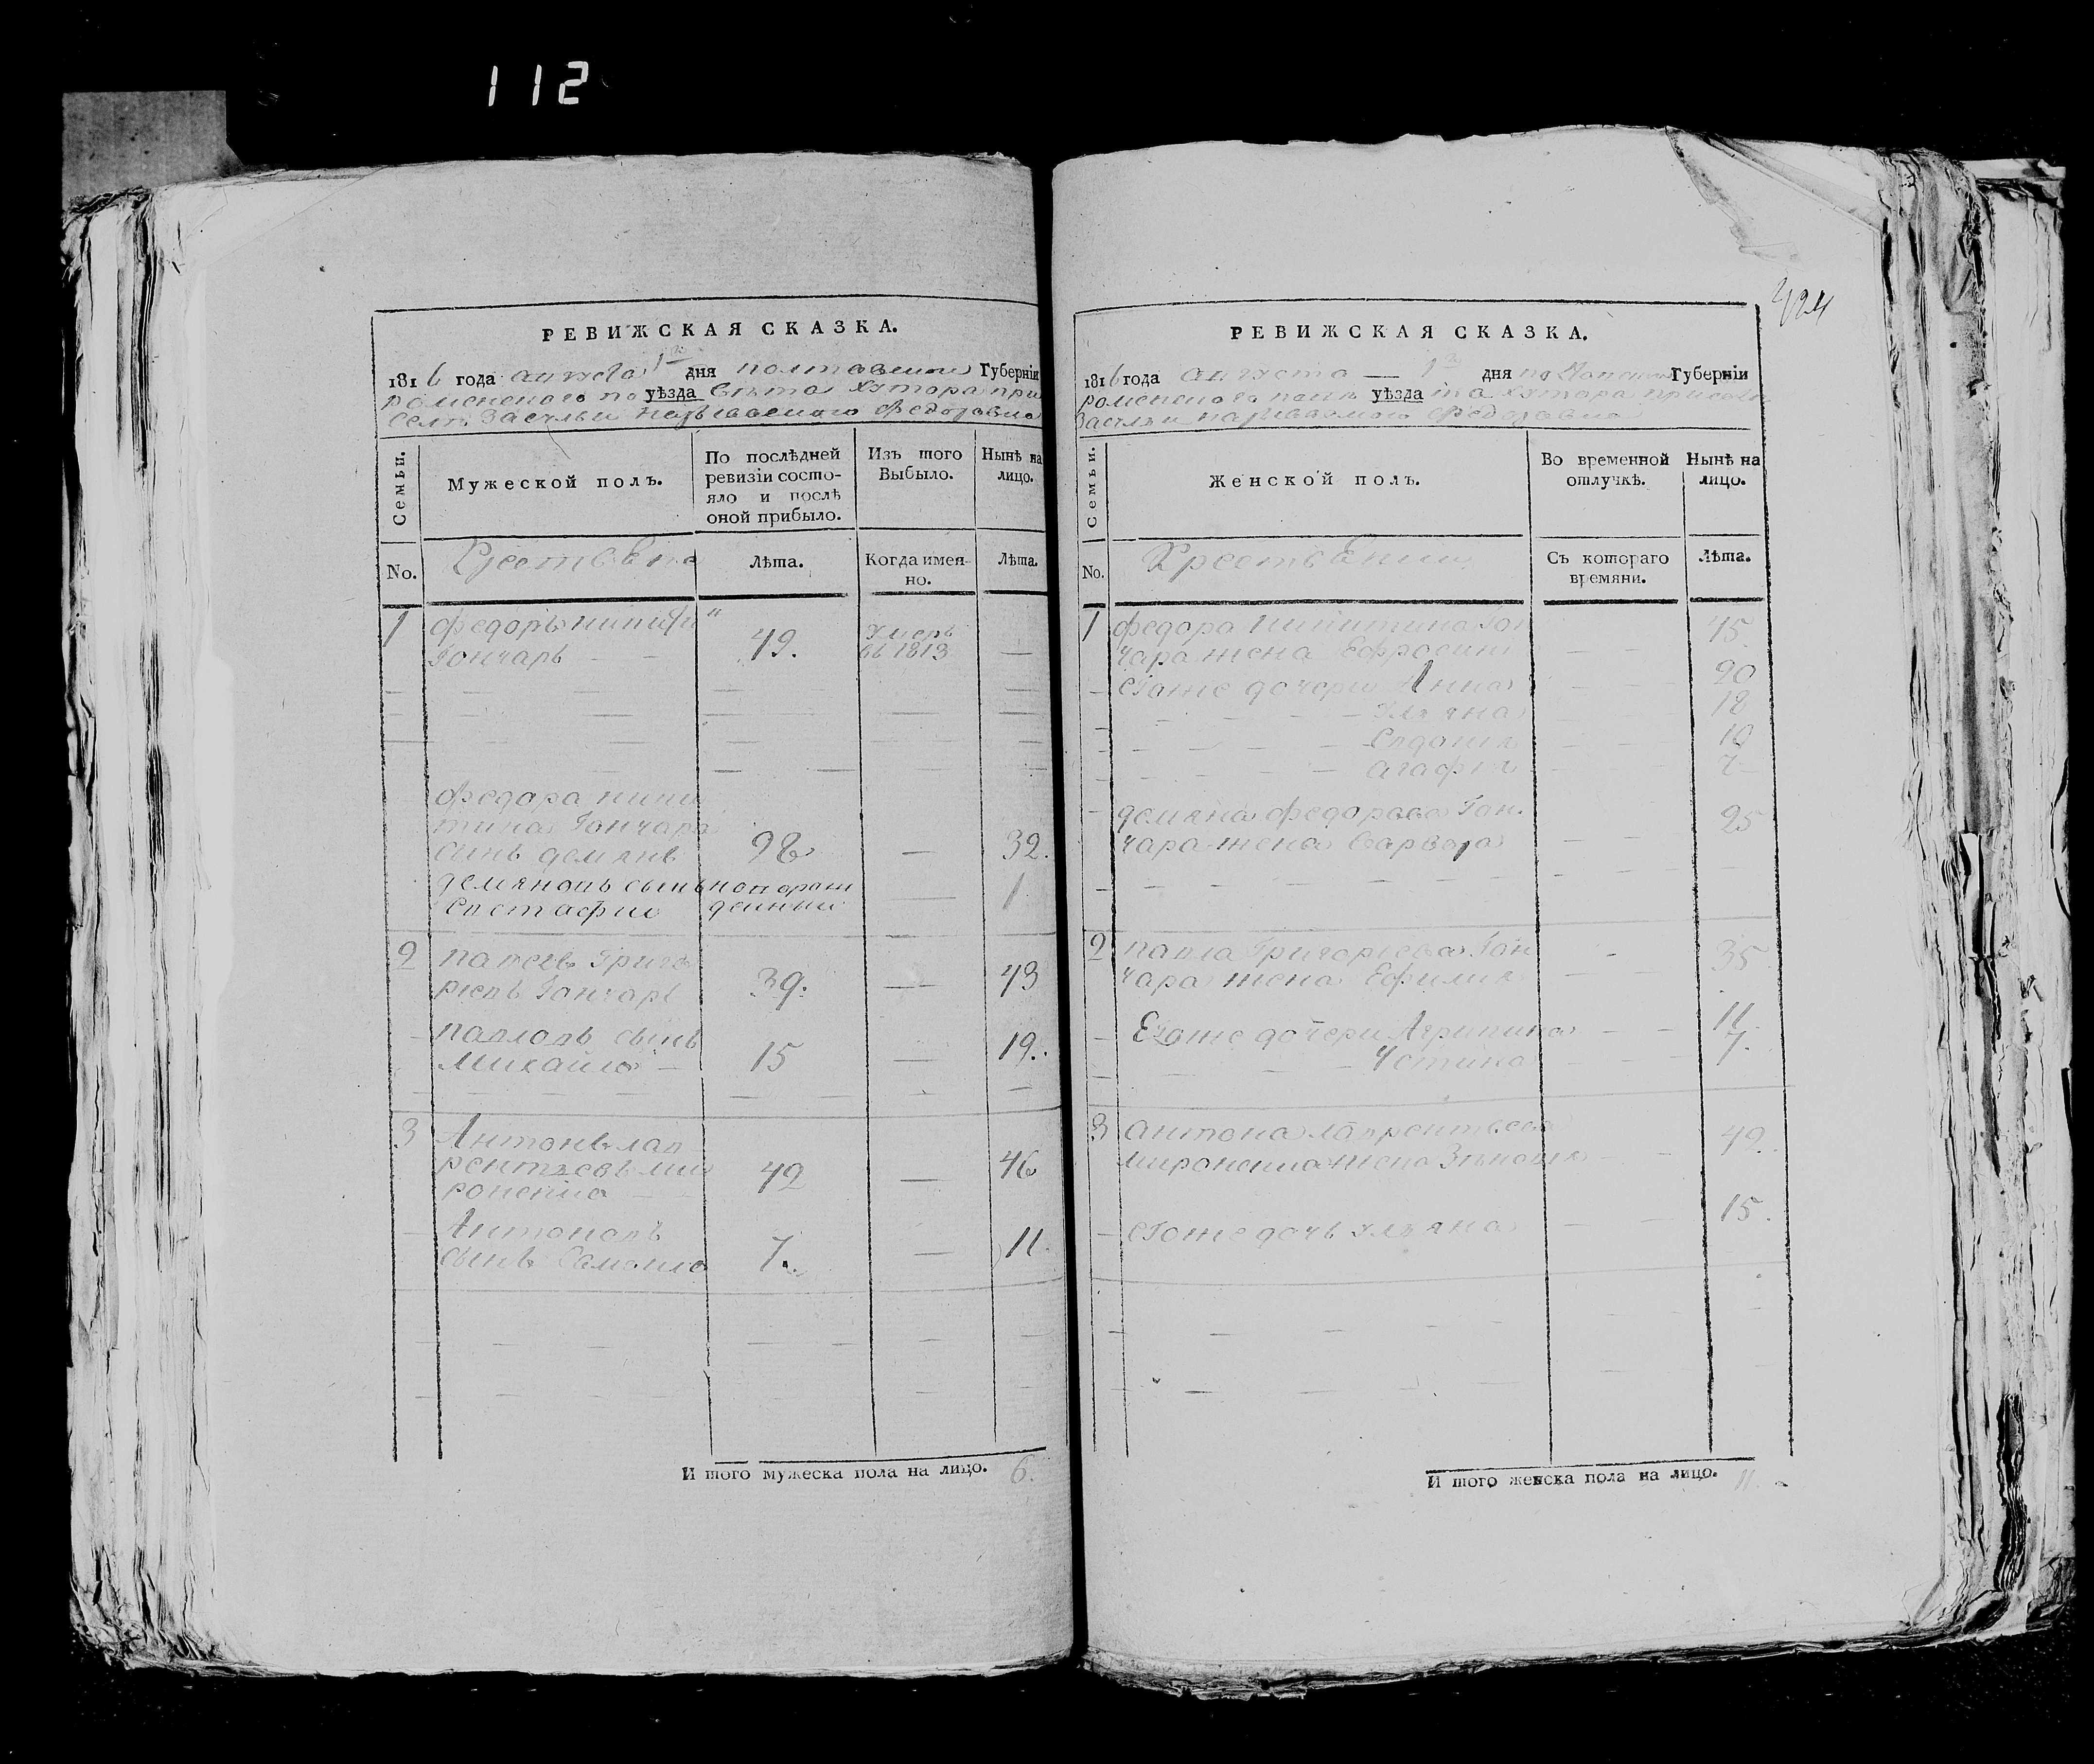 112
РЕВИЖСКАЯ СКАЗКА.
1816 года августа 1го дня полтавской Губерніи
роменского по уѣзда вѣта хутора при
селѣ Засульи называемого
Семьи.
Мужеской полъ.
По послѣдней ревизіи состо-
яло и послѣ
оной прибыло.
Изъ того
Выбыло.
Нынѣ на
лицо.
No.
Лѣта.
Когда имен-
но.
Лѣта.
1 федоръ
Гончаръ — — 49. умеръ въ 1813 —
федора ники
тина Гончара
сынъ демянъ 28 — 32.
демяновъ сынъ новорож
Евстафий денный — 1
2 павелъ Григо
рьевъ Гончаръ 39. — 43
павловъ сынъ
Михайло — 15 — 19.
3 Антонъ лав
рентьевъ ми
роненко — 42 — 46
Антоновъ
сынъ Самойло 7. — 11.
И того мужеска пола на лицо. 6.
424
РЕВИЖСКАЯ СКАЗКА.
1816 года августа — 1го дня Губерніи
роменского пов уѣзда та хутора при селѣ
Засульи называемого
Семьи.
Женской полъ.
Во временной
отлучкѣ.
Нынѣ на
лицо.
No.
Съ котораго
времяни.
Лѣта.
1 федора никитина Гон 45.
чара жена Ефросинія — —
— Егоже дочери Анна 20
— Ульяна 12
— Евдокия 10
— агафия 7
— демяна федорова Гон. 25
чара жена варвара — —
2 павла Григорьева Гон 35
чара жена Ефимия — —
— Егоже дочери Агрипина — — 11.
— Устина 7.
3 антона лаврентьева 42.
мироненка жена Зѣновия — —
— Егоже дочь ульяна — — 15.
И того женска пола на лицо. 11.